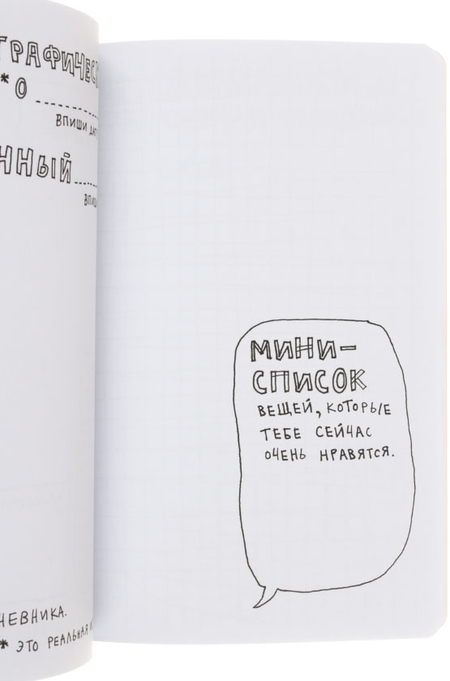 * О
ВПИШИ
ННЫЙ
НЕВНИКА.
* ЭТО РЕАЛЬНАЯ
МИНИ-
СПИСОК
ВЕЩЕЙ, КОТОРЫЕ
ТЕБЕ СЕЙЧАС
ОЧЕНЬ НРАВЯТСЯ.